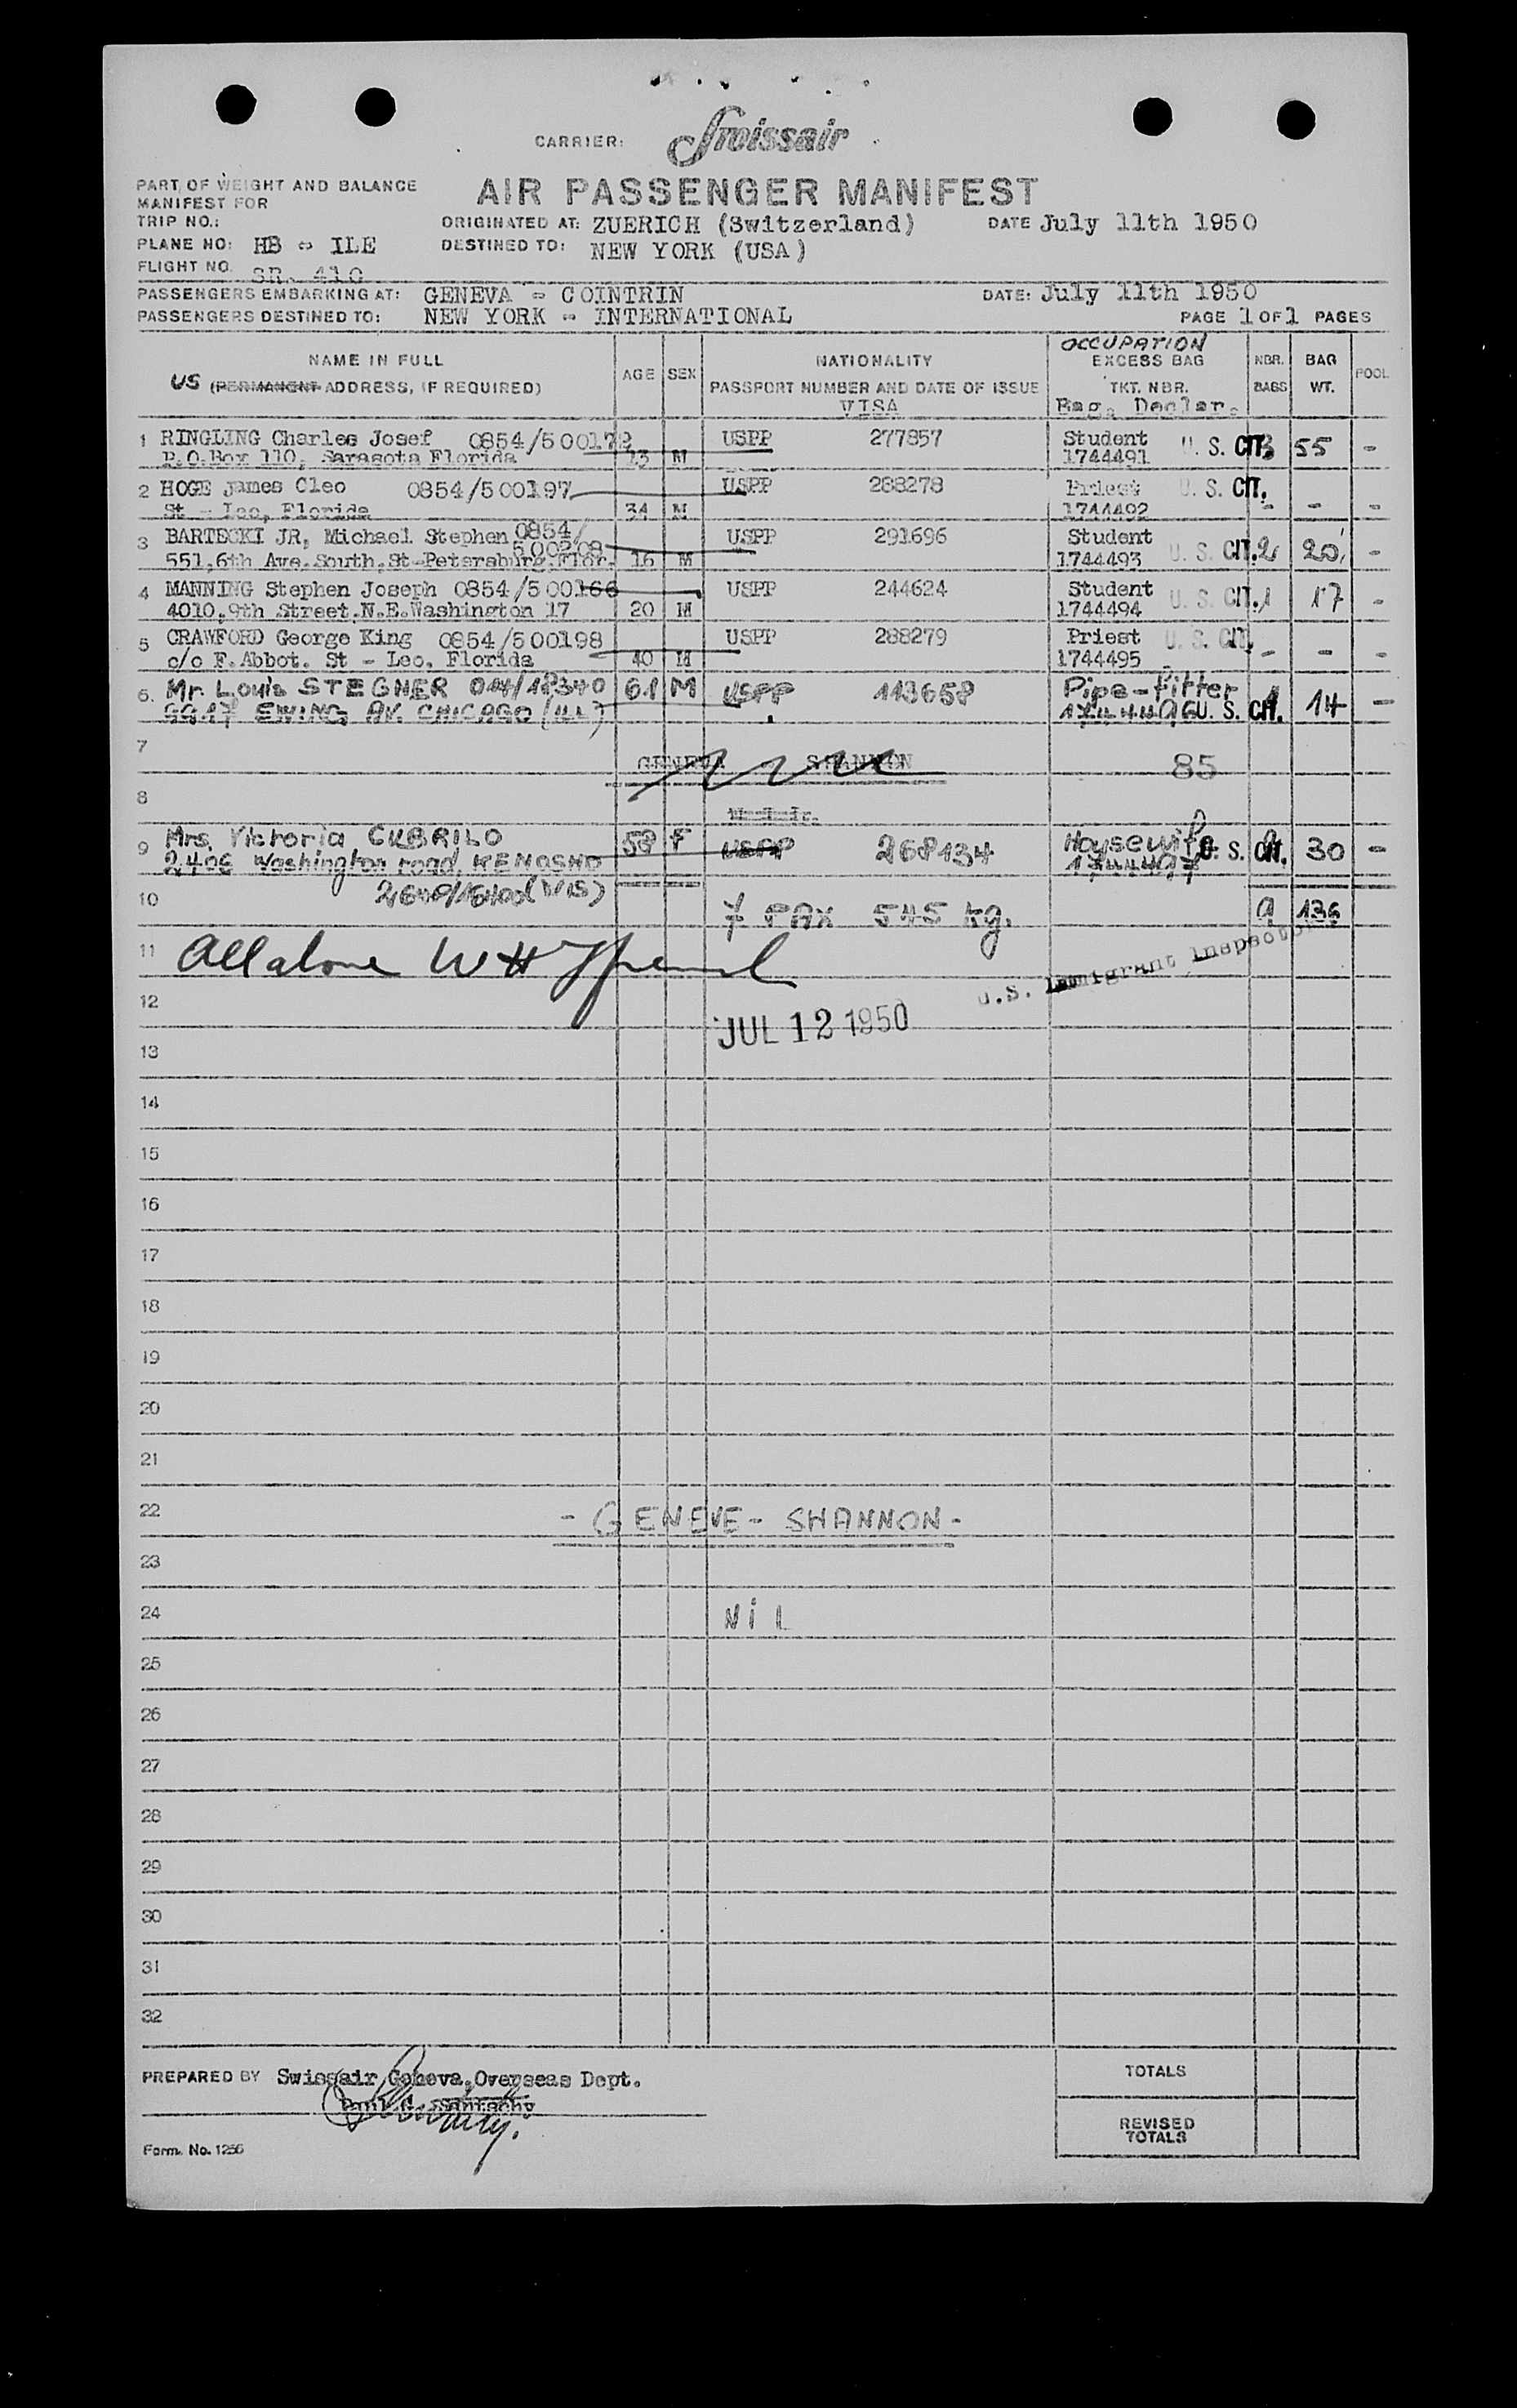 CARRIER: Swissair
PART OF WEIGHT AND BALANCE
MANIFEST FOR
AIR PASSENGER MANIFEST
TRIP NO.:
ORIGINATED AT: ZUERICH (Switzerland) DATE July 11th 1950
PLANE NO: HB - ILE DESTINED TO: NEW YORK (USA)
FLIGHT NO. SR. 410
PASSENGERS EMBARKING AT: GENEVA - COINTRIN DATE: July 11th 1950
PASSENGERS DESTINED TO: NEW YORK - INTERNATIONAL PAGE 1 OF 1 PAGES
OCCUPATION
NAME IN FULL AGE SEX NATIONALITY EXCESS BAG NBR. BAG POOL
US (PERMANENT ADDRESS, IF REQUIRED) PASSPORT NUMBER AND DATE OF ISSUE TKT. NBR. BAGS WT.
VISA Bag. Declar.
1 RINGLING Charles Josef 0854/500172 USPP 277857 Student U. S. CIT. 3 55 -
P.O.Box 110, Sarasota Florida M 1744491
2 HOGE James Cleo 0854/500197 USPP 288278 Priest U. S. CIT.
St - Leo, Florida 34 M 1744492 - - -
3 BARTECKI JR, Michael Stephen 0854/ USPP 291696 Student
500208
551,6th Ave.South,St-Petersburg,Flor. 16 M 1744493 U. S. CIT. 2 20 -
4 MANNING Stephen Joseph 0854/500166 USPP 244624 Student
4010,9th Street.N.E.Washington 17 20 M 1744494 U. S. CIT. 1 17 -
5 CRAWFORD George King 0854/500198 USPP 288279 Priest U. S. CIT.
c/o F.Abbot. St - Leo, Florida 40 M 1744495 - - - -
6. Mr. Louis STEGNER 014/18340 61 M USPP 113658 Pipe-fitter 1
9917 EWING AV. CHICAGO (ILL) 1744496 U. S. CIT. 14 -
7 GENEVA SHANNON 85
8
9 Mrs. Victoria CUBRILO 58 F USPP 268134 Housewife U. S. CIT. 2 30 -
2406 Washington road, KENOSHO 1744497
10 (WIS)
7 PAX 545 kg. 9 136
11 All above W H
U.S. Immigrant Inspector
12
JUL 12 1950
13
14
15
16
17
18
19
20
21
22 - GENEVE - SHANNON -
23
24 NiL
25
26
27
28
29
30
31
32
PREPARED BY Swissair Geneva,Overseas Dept. TOTALS
Paul G.
REVISED
TOTALS
Form. No. 1256